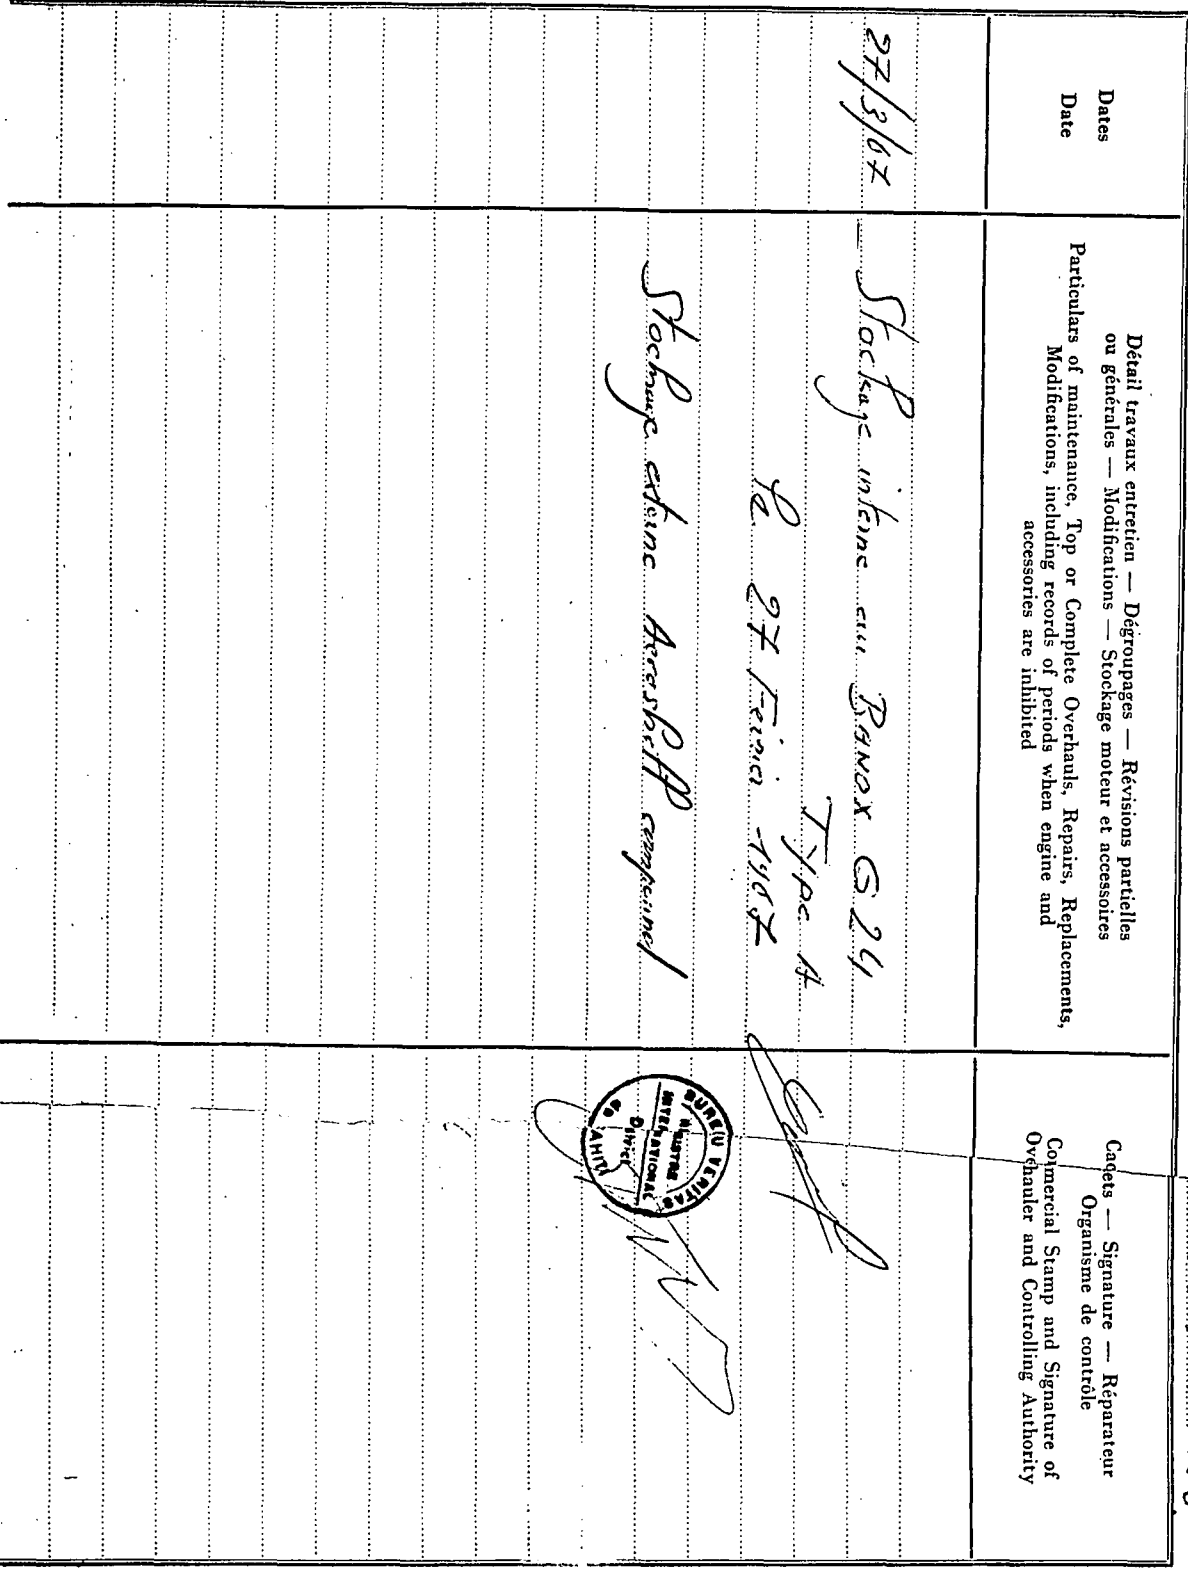 Dates
Date
Détail travaux entretien — Dégroupages — Révisions partielles
ou générales — Modifications — Stockage moteur et accessoires
Particulars of maintenance, Top or Complete Overhauls, Repairs, Replacements,
Modifications, including records of periods when engine and
accessories are inhibited
Cachets — Signature — Réparateur
Organisme de contrôle
Commercial Stamp and Signature of
Overhauler and Controlling Authority
27/3/67 Stockage interne au BANOX G 24
Type A
le 27 Février 1967
Stockage externe
BUREAU VERITAS
REGISTRE
INTERNATIONAL
TAHITI